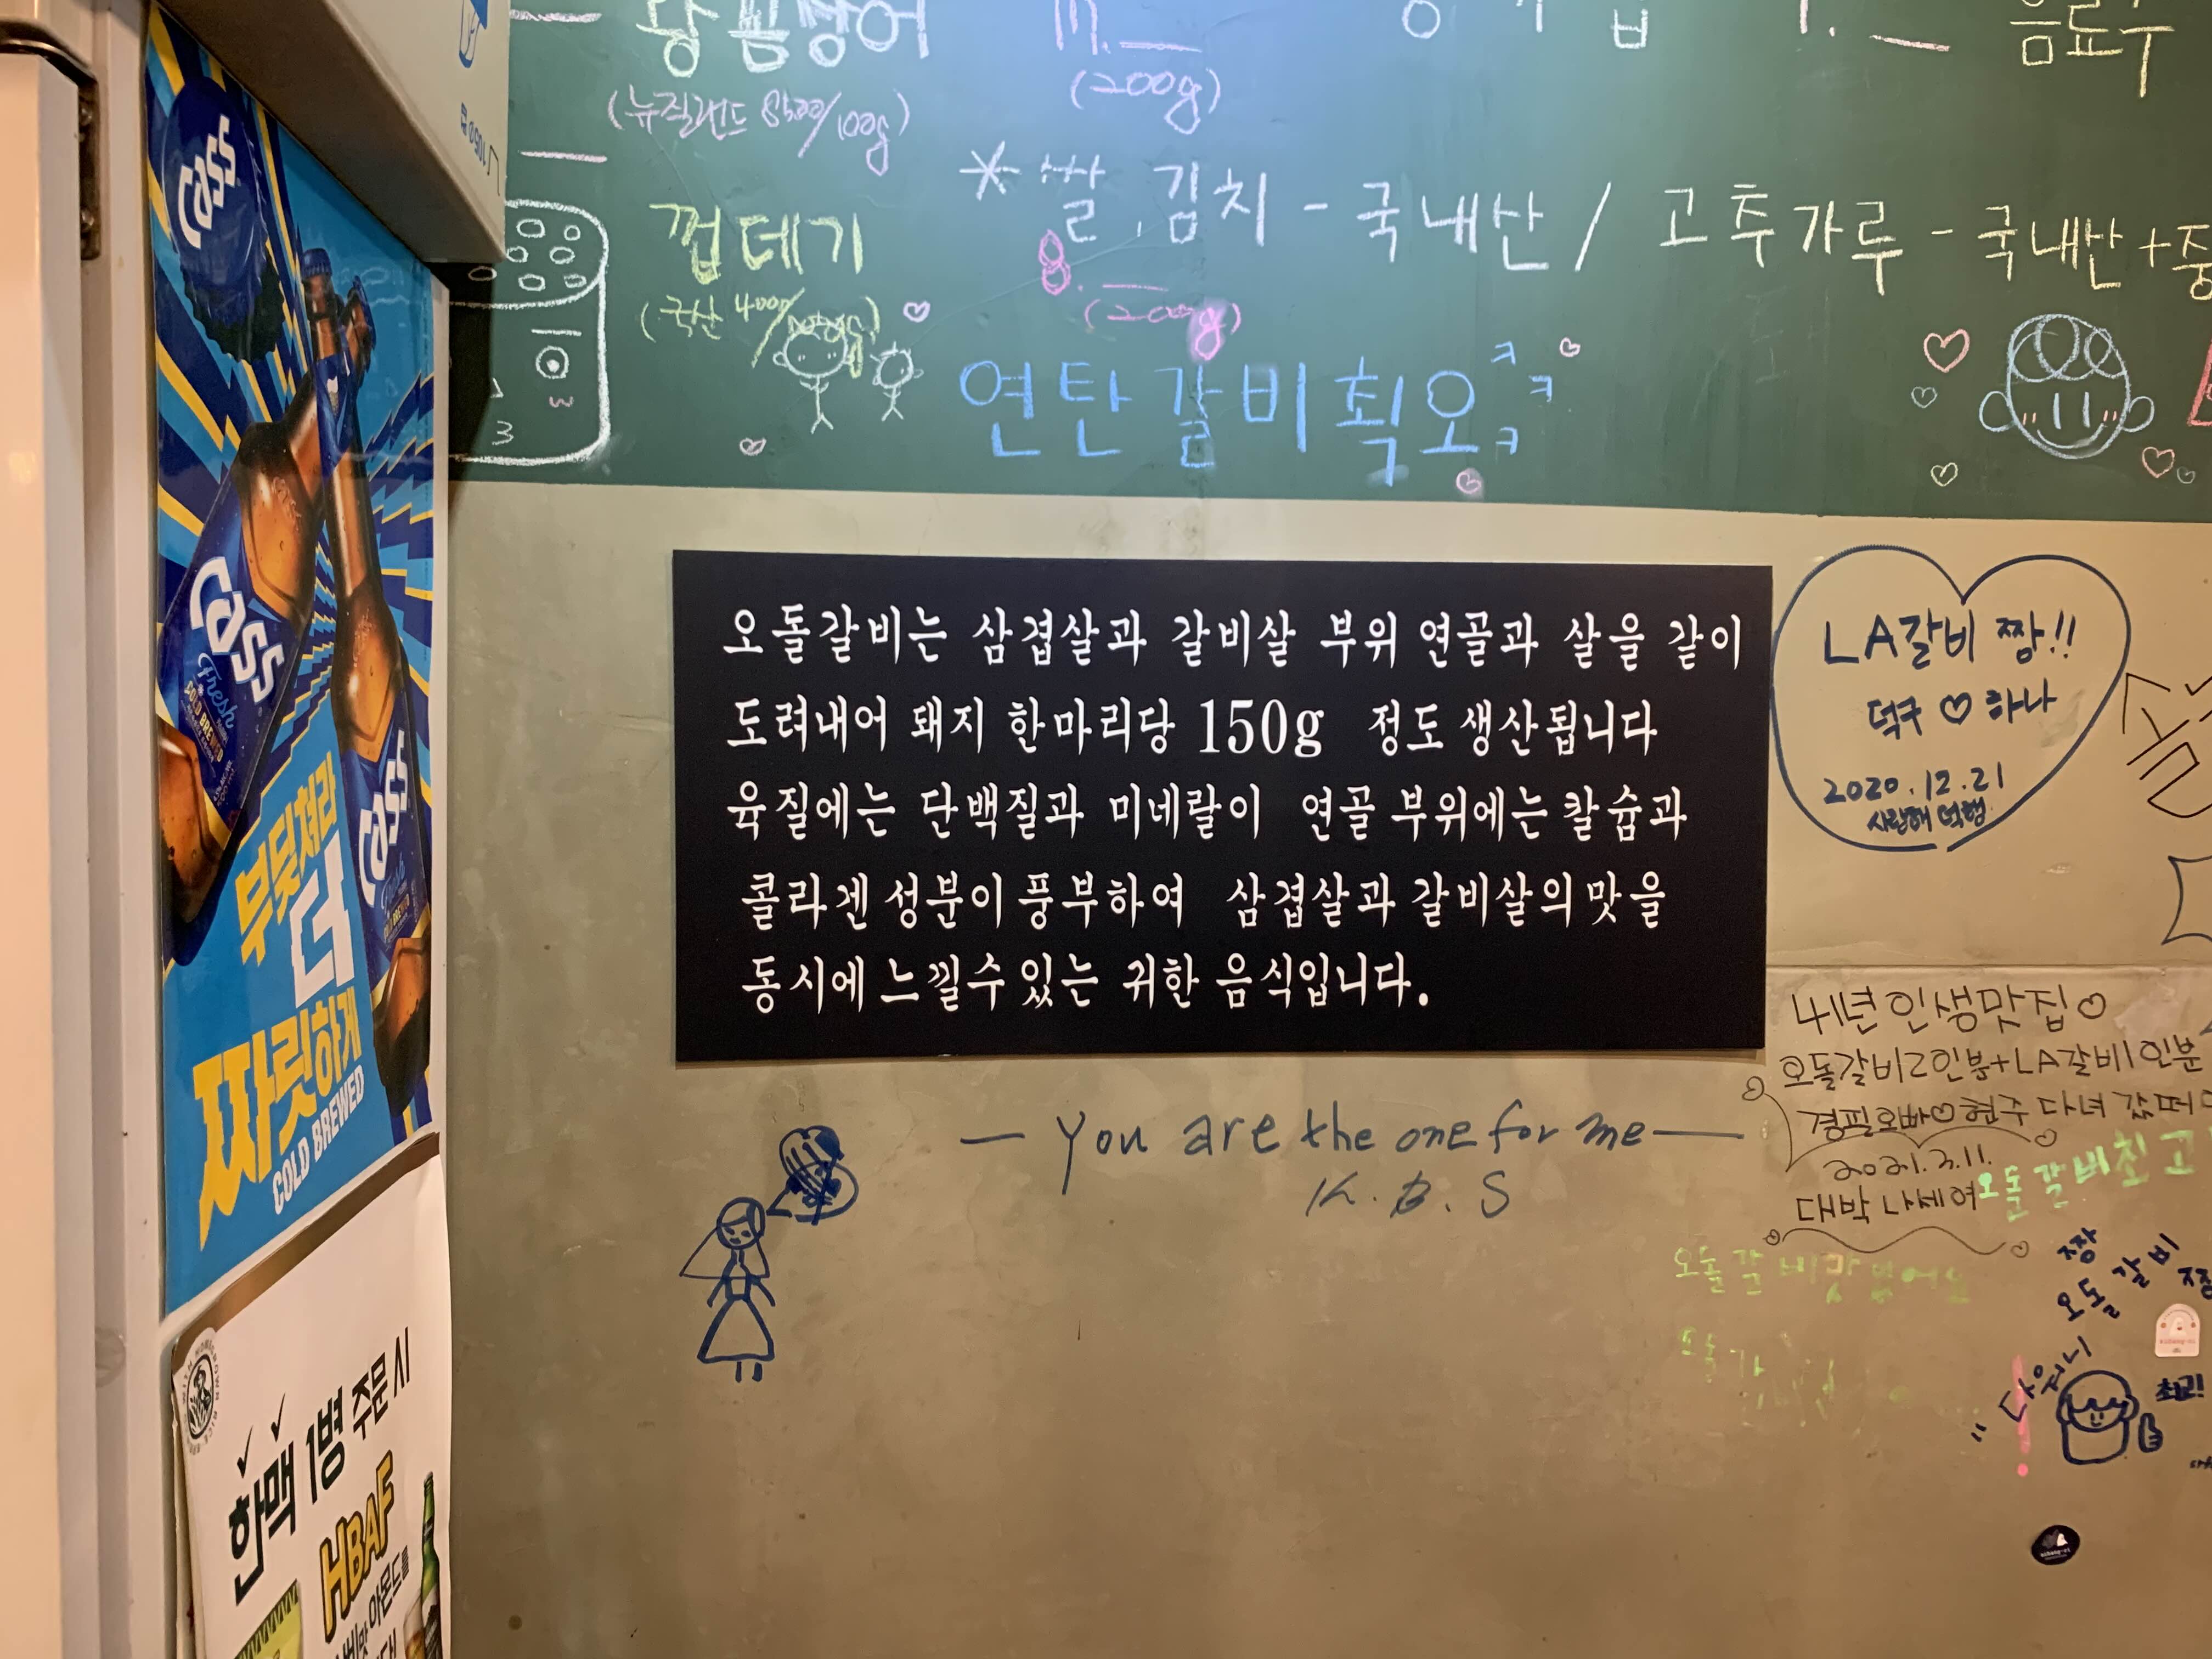 음료수
(200g)
(뉴질랜드 8500/100g)
*쌀.김치-국내산/고추가루-국내산+중
껍데기
연탄갈비최오
ㅋ
ㅋ
ㅋ
3
Cass
Cass
Fresh
COLD BREWED
Cass
부딪쳐라
더
짜릿하게
COLD BREWED
오돌갈비는 삼겹살과 갈비살 부위 연골과 살을 같이
도려내어 돼지 한마리당 150g 정도 생산됩니다
육질에는 단백질과 미네랄이 연골 부위에는 칼슘과
콜라겐 성분이 풍부하여 삼겹살과 갈비살의 맛을
동시에 느낄수 있는 귀한 음식입니다.
LA갈비 짱!!
덕구♡하나
2020.12.21
사랑해
41년 인생맛집♡
오돌갈비2인분+LA갈비1인분
경필오빠♡현주 다녀
2021.3.11.
대박 나세여
오돌갈비최고
오돌갈비맛있어요
짱
오돌갈비
짱
최고!
— You are the one for me —
K.B.S
한맥 1병 주문 시
HBAF
아몬드를